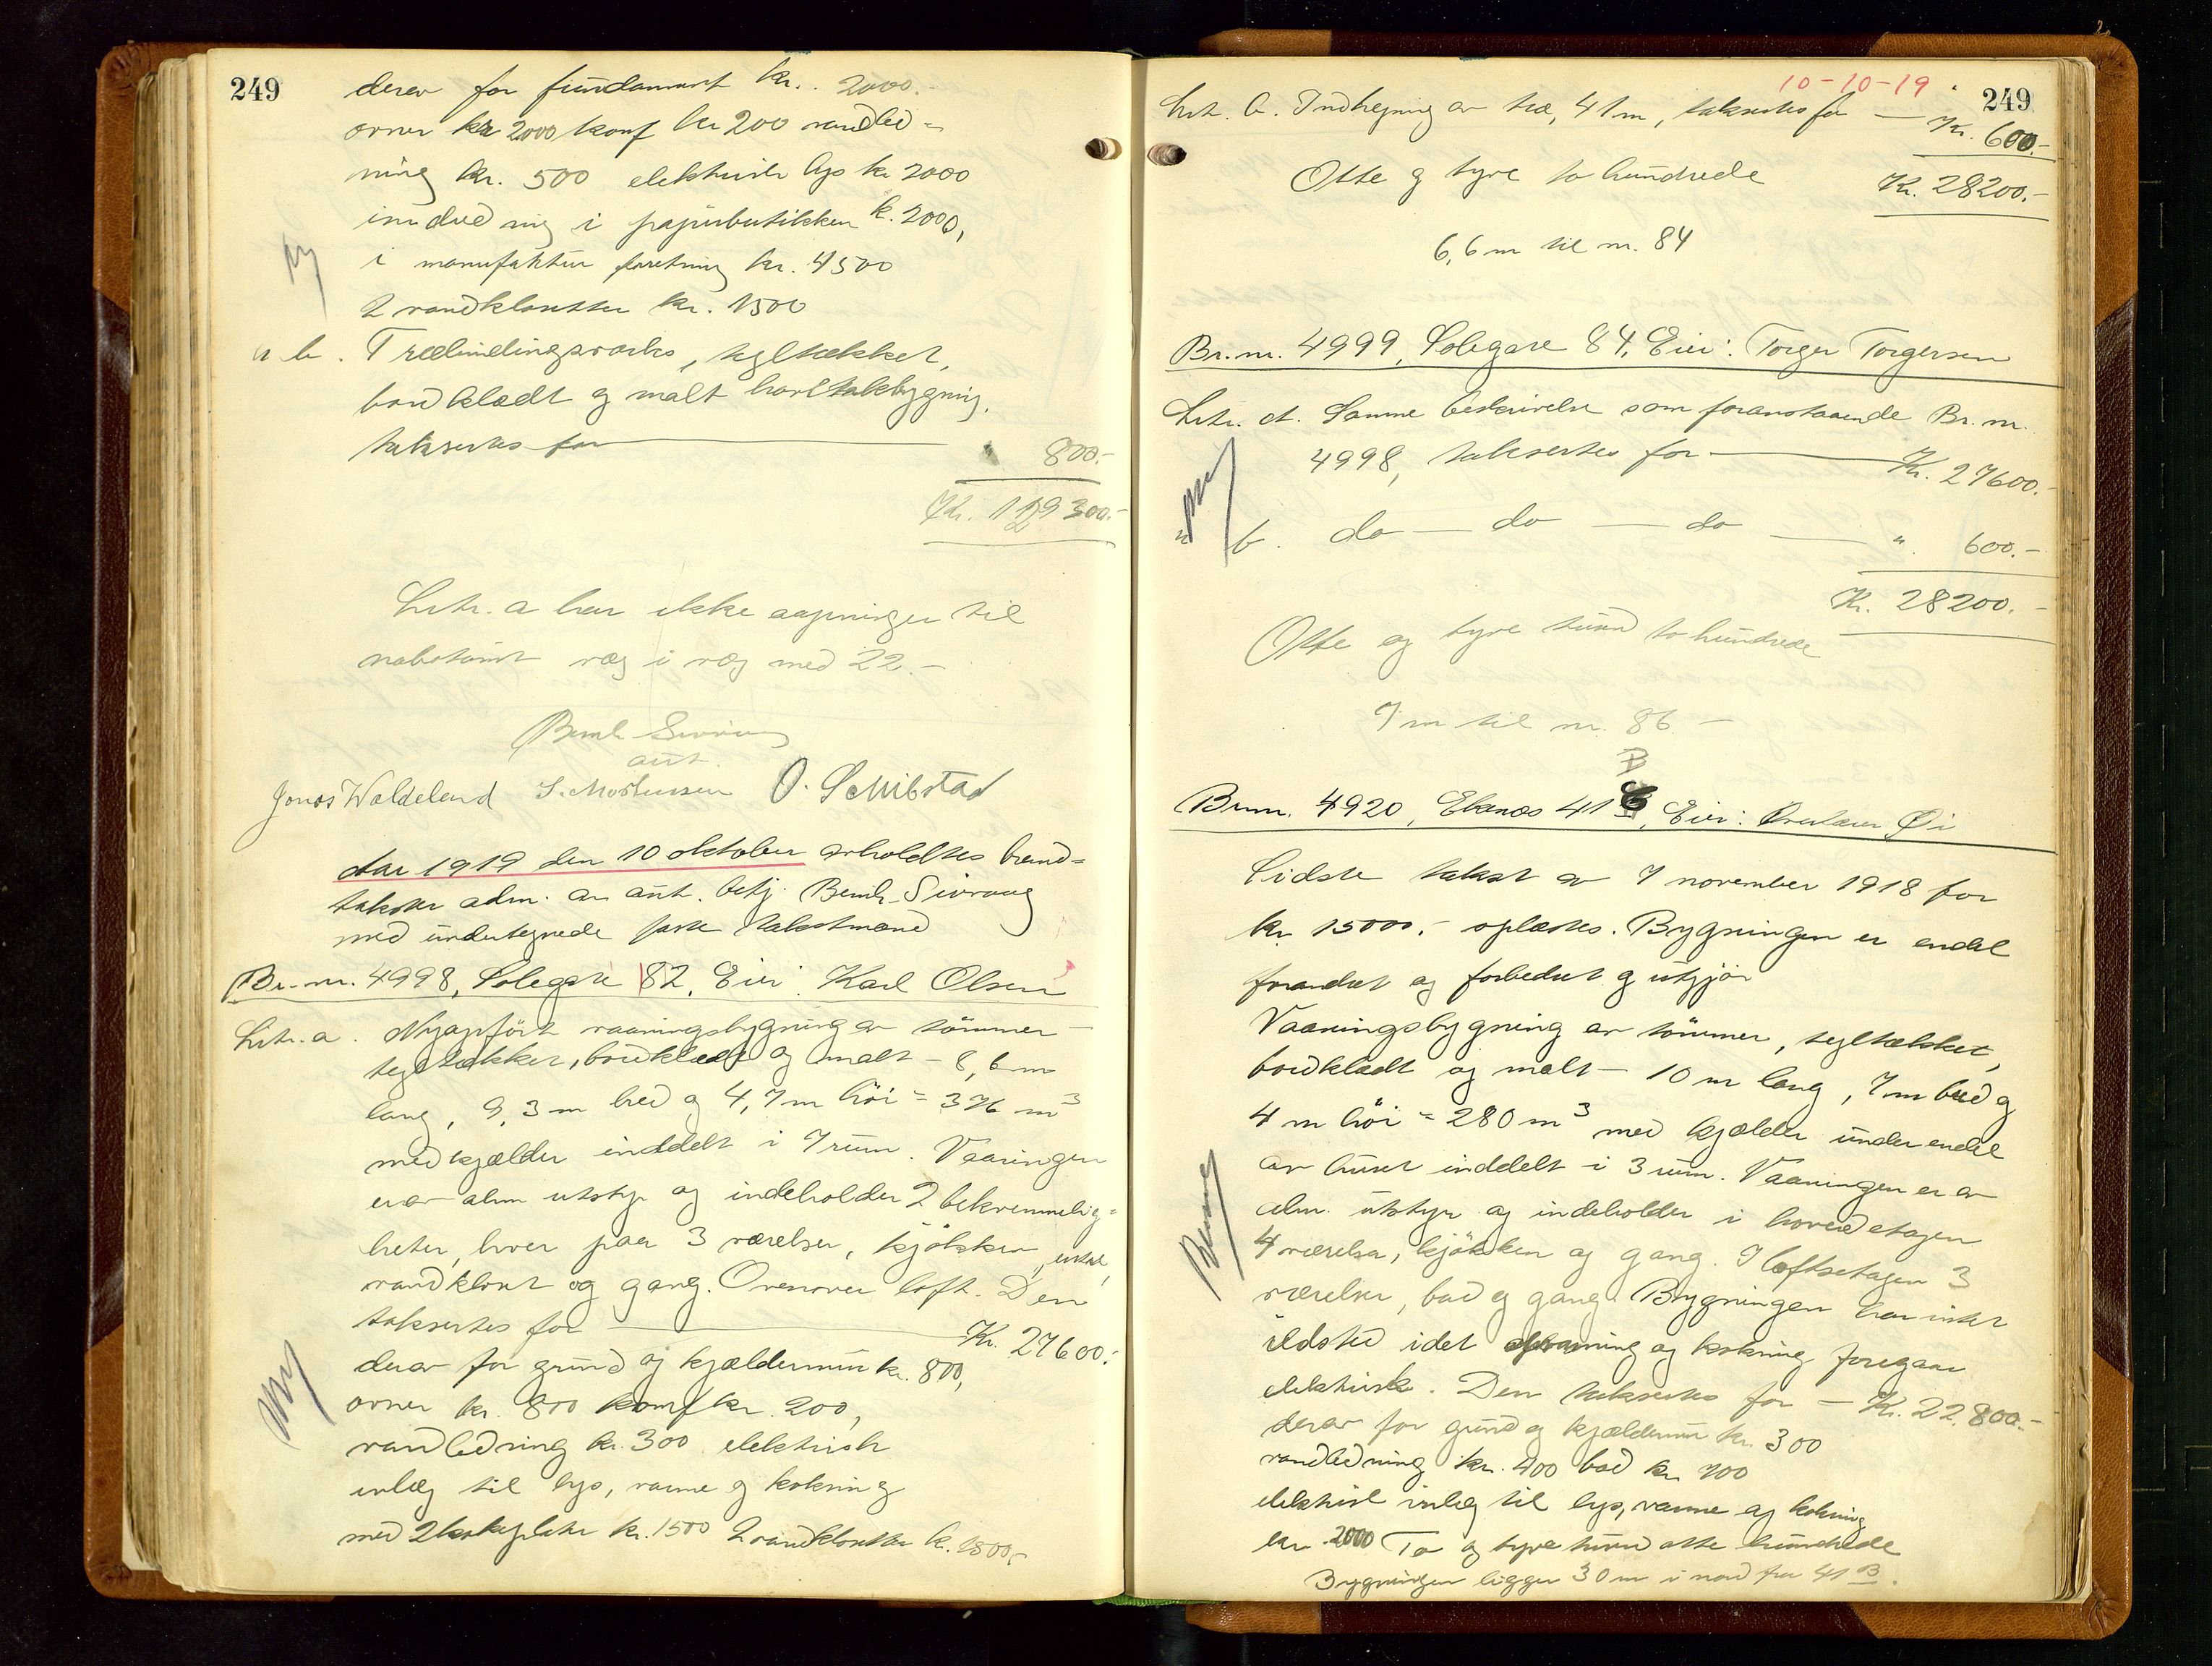 249
derav for fundament kr. 2000.-
ovner kr 2000 komf kr 200 vandled-
ning kr. 500 elektrisk lys kr 2000
inndredning i papirbutikken k. 2000,
i manufaktur forretning kr. 4500
2 vandklosetter kr. 1500
" b. Træbindingsverks, tegltækket,
bordklædt og malt halvtakbygning,
taksertes for 800.-
Kr. 119300.-
Litr. a har ikke aapninger til
nabotomt væg i væg med 22.-
Bernh. Sivraug
aut.
Jonas Waldeland S. Mortensen O. Schibstad
Aar 1919 den 10 oktober avholdtes brand-
takster adm. av aut. betj. Bernh. Sivraug
med undertegnede faste takstmænd
Br.-nr. 4998, Solegate 82, Eier: Karl Olsen
Litr. a. Nyopført vaaningsbygning av tømmer
tegltækket, bordklædt og malt - 8,6 m
lang, 9,3 m bred og 4,7 m höi = 376 m³
med kjælder inddelt i 7 rum. Vaaningen
er av alm utstyr og indeholder 2 bekvemmelig-
heter, hver paa 3 værelser, kjøkken, entre,
vandklosett og gang. Ovenover loft. Den
taksertes for Kr. 27600.-
derav for grund og kjældermur kr. 800,
ovner kr. 800 komf kr. 200,
vandledning kr. 300 elektrisk
inlæg til lys, varme og kokning
med 2 kokeplater kr. 1500 2 vandklosetter kr. 1500,-
10-10-19
249
Litr. b. Indhegning av træ, 41 m, taksertes for Kr. 600.-
Otte og tyve to hundrede Kr. 28200.-
6,6 m til nr. 84
Br.nr. 4999, Solegate 84, Eier: Torger Torgersen
Litr. a. Samme beskrivelse som foranstaaende Br. nr.
4998, taksertes for Kr. 27600.-
" b. do - do - do " 600.-
Kr. 28200.-
Otte og tyve tusind to hundrede
7 m til nr. 86 -
B
Br.nr. 4920, Ekenæs 41, Eier: Øi
Sidste takst av 7 november 1918 for
kr. 15000.- oplæstes. Bygningen er endel
forandret og forbedret og utgjør
Vaaningsbygning av tømmer, tegltækket,
bordklædt og malt - 10 m lang, 7 m bred og
4 m höi = 280 m³ med kjælder under endel
av huset inddelt i 3 rum. Vaaningen er av
alm. utstyr og indeholder i hovedetagen
4 værelser, kjøkken og gang. I loftsetagen 3
værelser, bad og gang. Bygningen har intet
ildsted idet opvarmning og kokning foregaar
elektrisk. Den taksertes for - Kr. 22,800.-
derav for grund og kjældermur kr. 300
vandledning kr. 400 bad kr. 700
elektrisk inlæg til lys, varme og kokning
kr. 2000 To og tyve tusind otte hundrede
Bygningen ligger 30 m i nord fra 41 B.